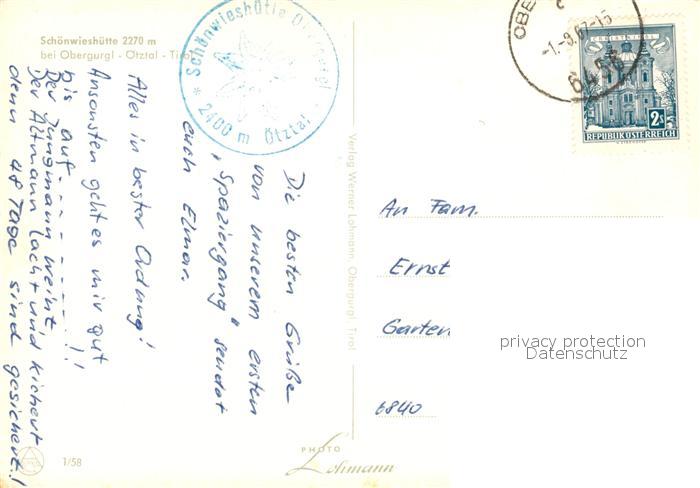 Schönwieshütte 2270 m
bei Obergurgl - Ötztal - Tirol
Schönwieshütte Obergurgl
* 2400 m Ötztal
Die besten Grüße
von unserem ersten
"Spaziergang" sendet
euch Elmar.
Alles in bester Ordnung!
Ansonsten geht es mir gut
bis auf --------!!
Der Jungmann weint,
Der Altmann lacht und kichert
denn 48 Tage sind gesichert!
1/58
Verlag Werner Lohmann, Obergurgl, Tirol
PHOTO
Lohmann
OBE
-1.-9.67-15
CHRISTKINDL
2S
REPUBLIK ÖSTERREICH
An Fam.
Ernst
Garten
6840
privacy protection
Datenschutz